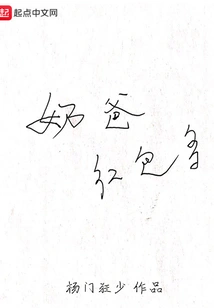 起点中文网
奶爸
红包多
杨门狂少 作品